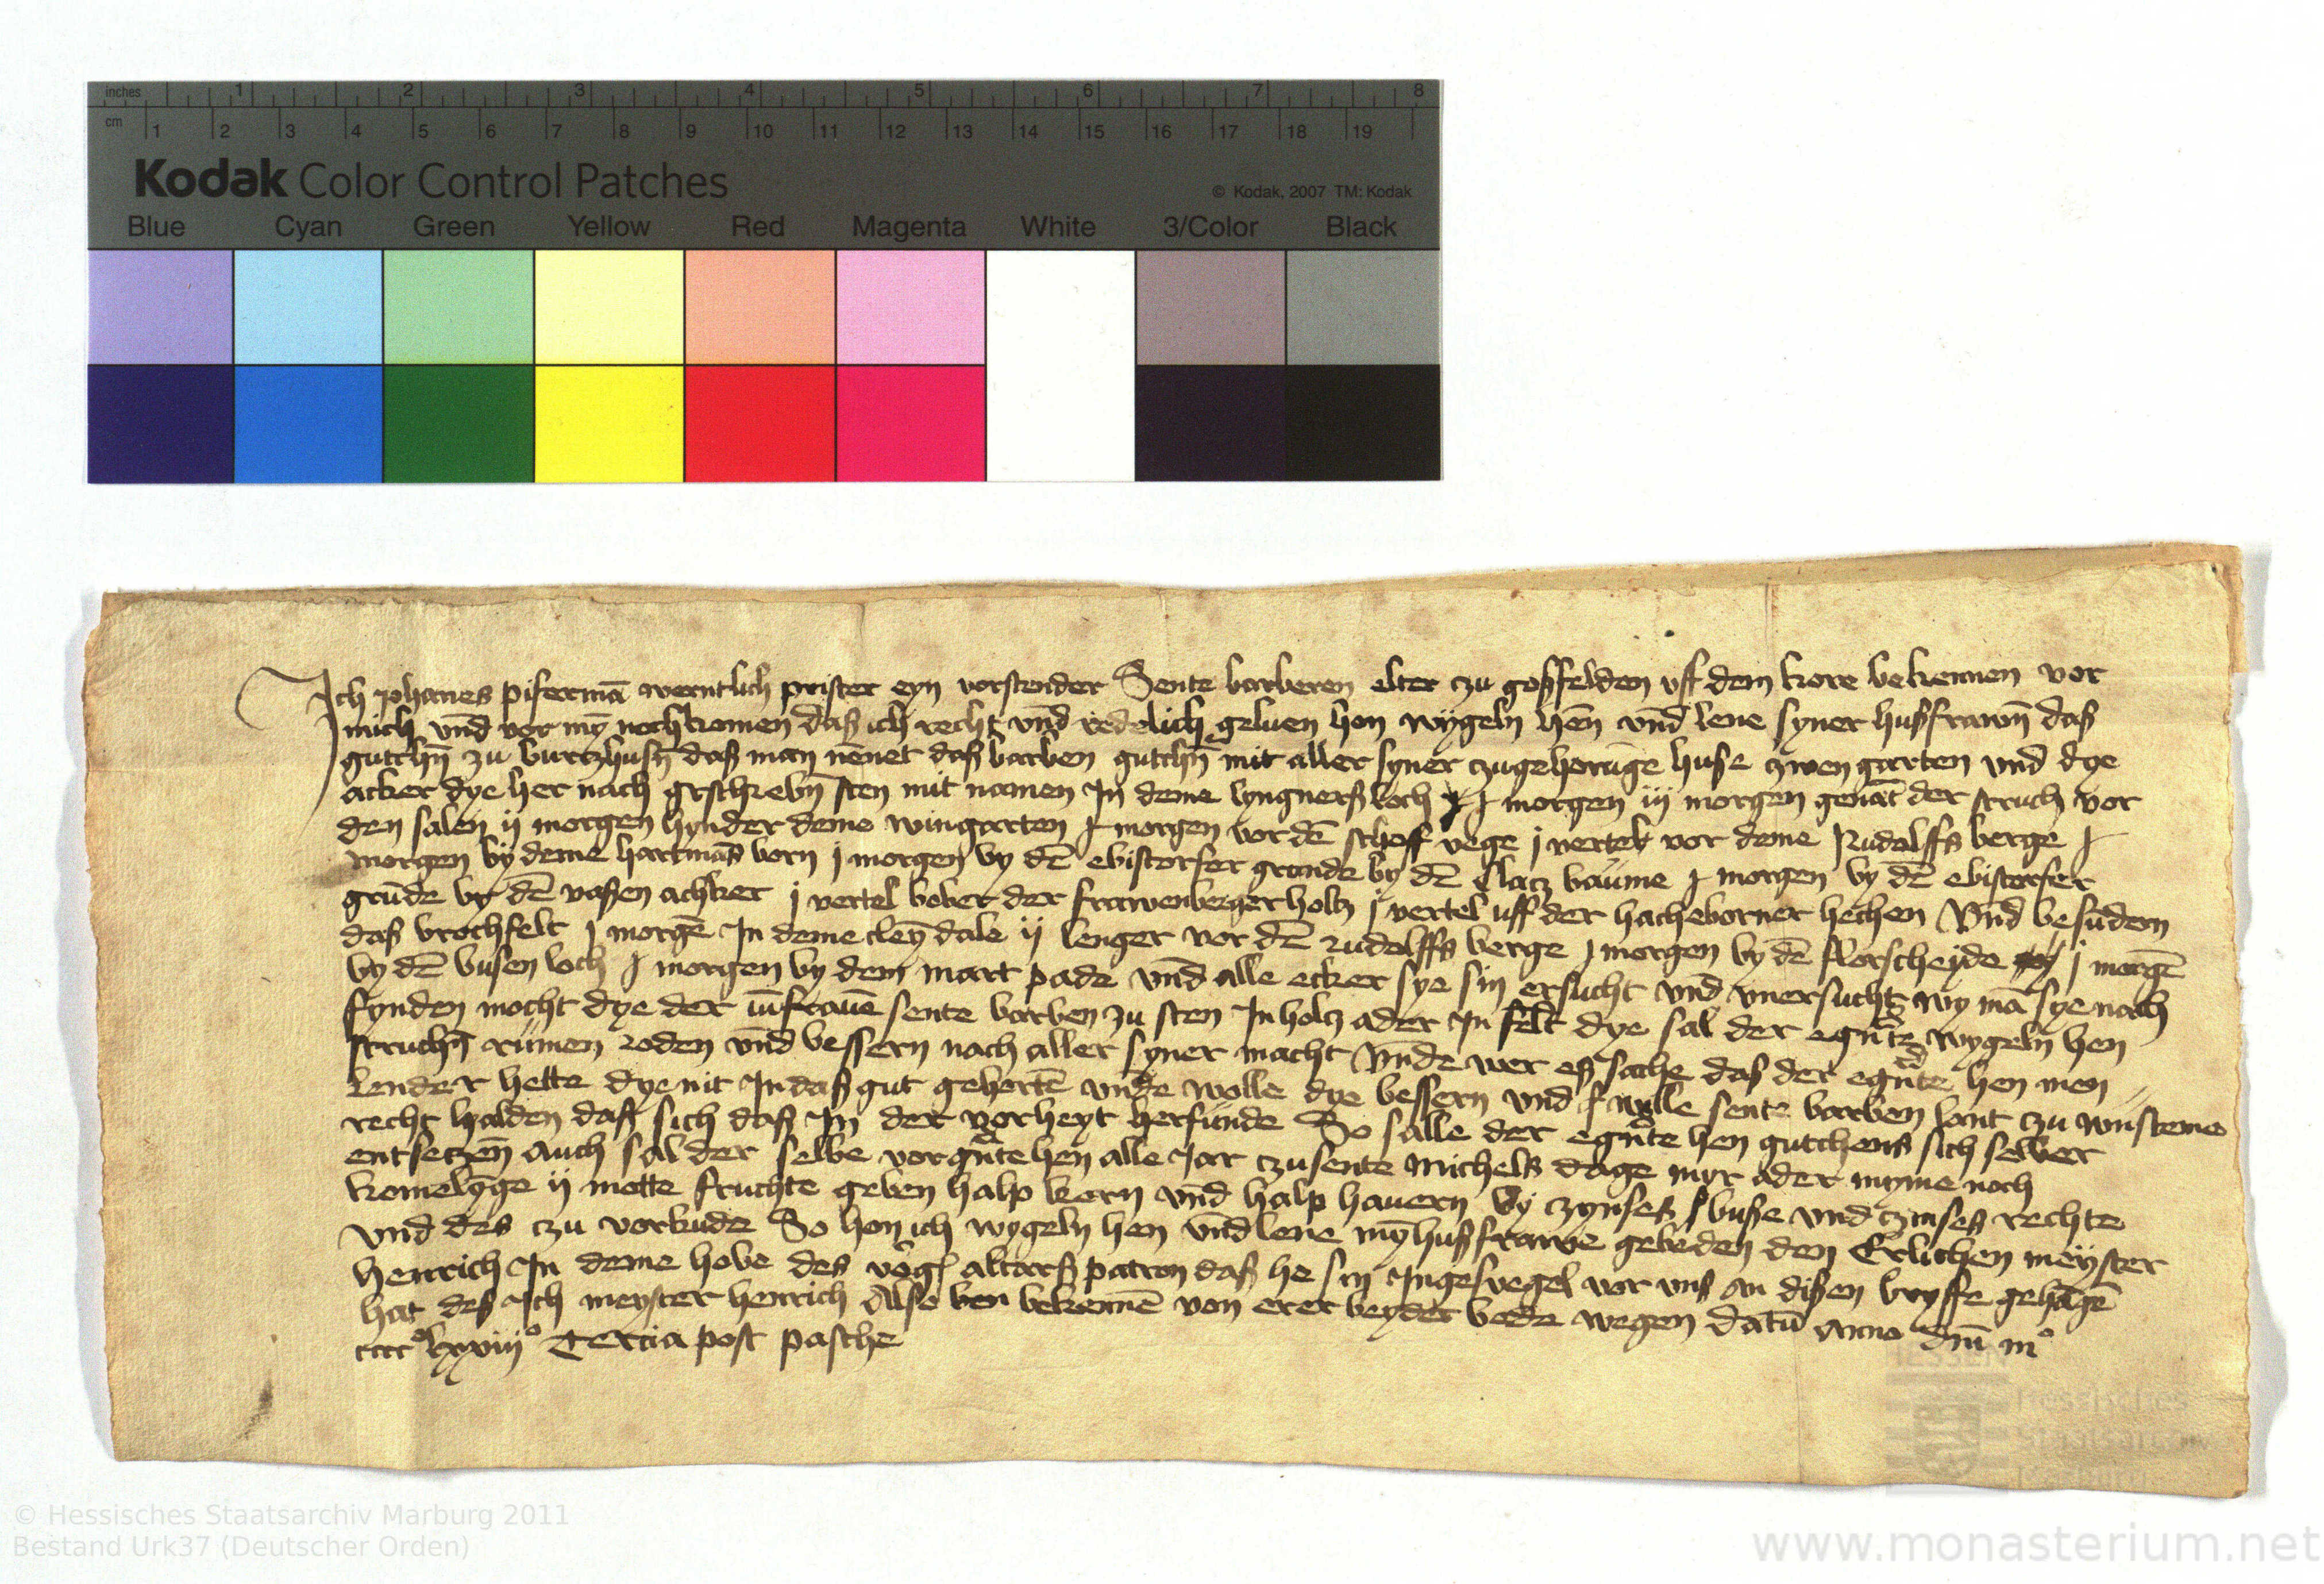 inches 1 2 3 4 5 6 7 8
cm 1 2 3 4 5 6 7 8 9 10 11 12 13 14 15 16 17 18 19
Kodak Color Control Patches
© Kodak, 2007 TM: Kodak
Blue Cyan Green Yellow Red Magenta White 3/Color Black
Ich Johanes pifermā werntlich prister eyn vorstender Sente barberen elter zu goßfelden uff dem kore bekennen vor
mich vnd vor my nochkomen daß ich recht vnd redelich geluen hen wygeln hen vnd lene syner hußfrawn daß
gutchn zu burtzhusn daß man nēnet daß barben gutchn mit aller syner czugehorūge huse zwen garten vnd dye
acker dye her nach geschrebn sten mit namen In deme lyngnerß loch morgen iij morgen genāt der struch vor
den salen ij morgen hynder deme wingarten morgen vor dē schoff vege j vertel vor deme Rudolffs berge
morgen by deme hartmās born j morgen by dē ebistorfer grunde by dē Clacz baume morgen by dē ebistorfer
grūde by dē vaßen achker j vertel bober der frawenberger holtz j vertel uff der hacheborner hechen Vnd besūdern
daß brochfelt j morgē In deme cleȳ dale ij lenger vor dē Rudolffs berge j morgen by dē florscheyde j morgē
by dē busen loch morgen by dem mart pade vnd alle ecker sye sin ersucht vnd vnersucht wy mā sye nach
fynden mocht dye der iūfrauē sente barben zu sten In holtz ader In felt dye sal der egnte wygeln hen
struchn rumen roden vnd bessern nach aller syner macht Vnde wer eß sache daß der egnte hen men
lender hette dye nit In daß gut gehortē vnde wolle dye bessern vnd wolle sente barben lant zu wustene
recht halden daß sich daß In der vorheyt herfunde So salle der egnte hen gutchens sich selber
entseczen Auch sal der selbe vorgnte hen alle Jar czu sente Michels dage myr ader myme noch
komelyge ij motte fruchte geben halp korn vnd halp hauern by zynses buße vnd czinses rechte
vnd des czu vorkude So hon ich wygeln hen vnd lene my hußfrawe gebeden den Erlichen meyster
Henrich In deme hobe des altarß patron daß he sin Ingesegel vor vnß an dißen bryffe gehāgē
hat deß Ich meyster henrich Also ben bekennē von erer beyder bede wegen datū Anno dnī mº
ccccº lxxviijº Tercia post pasche
Hessisches
Staatsarchiv
Marburg
© Hessisches Staatsarchiv Marburg 2011
Bestand Urk37 (Deutscher Orden)
www.monasterium.net